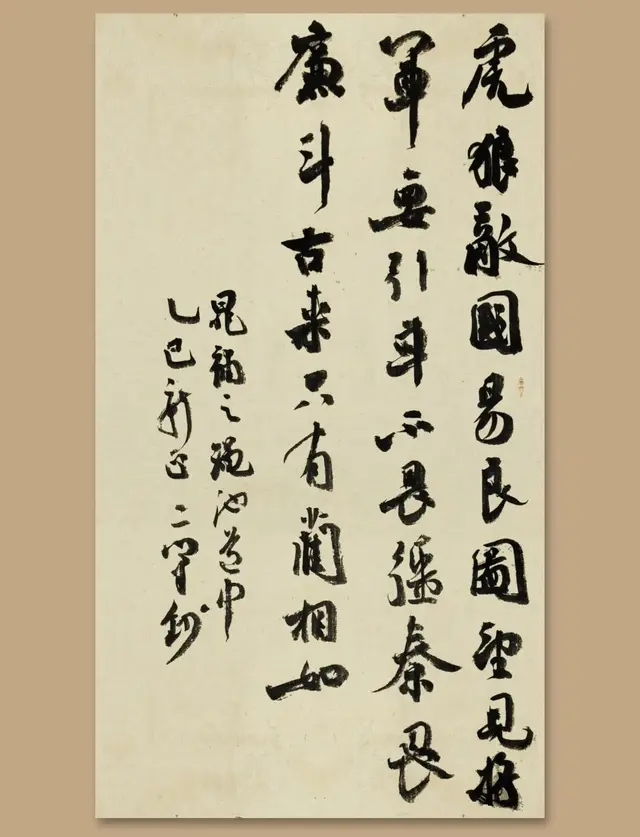 虎狼敵國易良圖望見將
軍要引車不畏彊秦畏
廉斗古来只有藺相如
晁補之澠池道中
乙巳新正二鈔